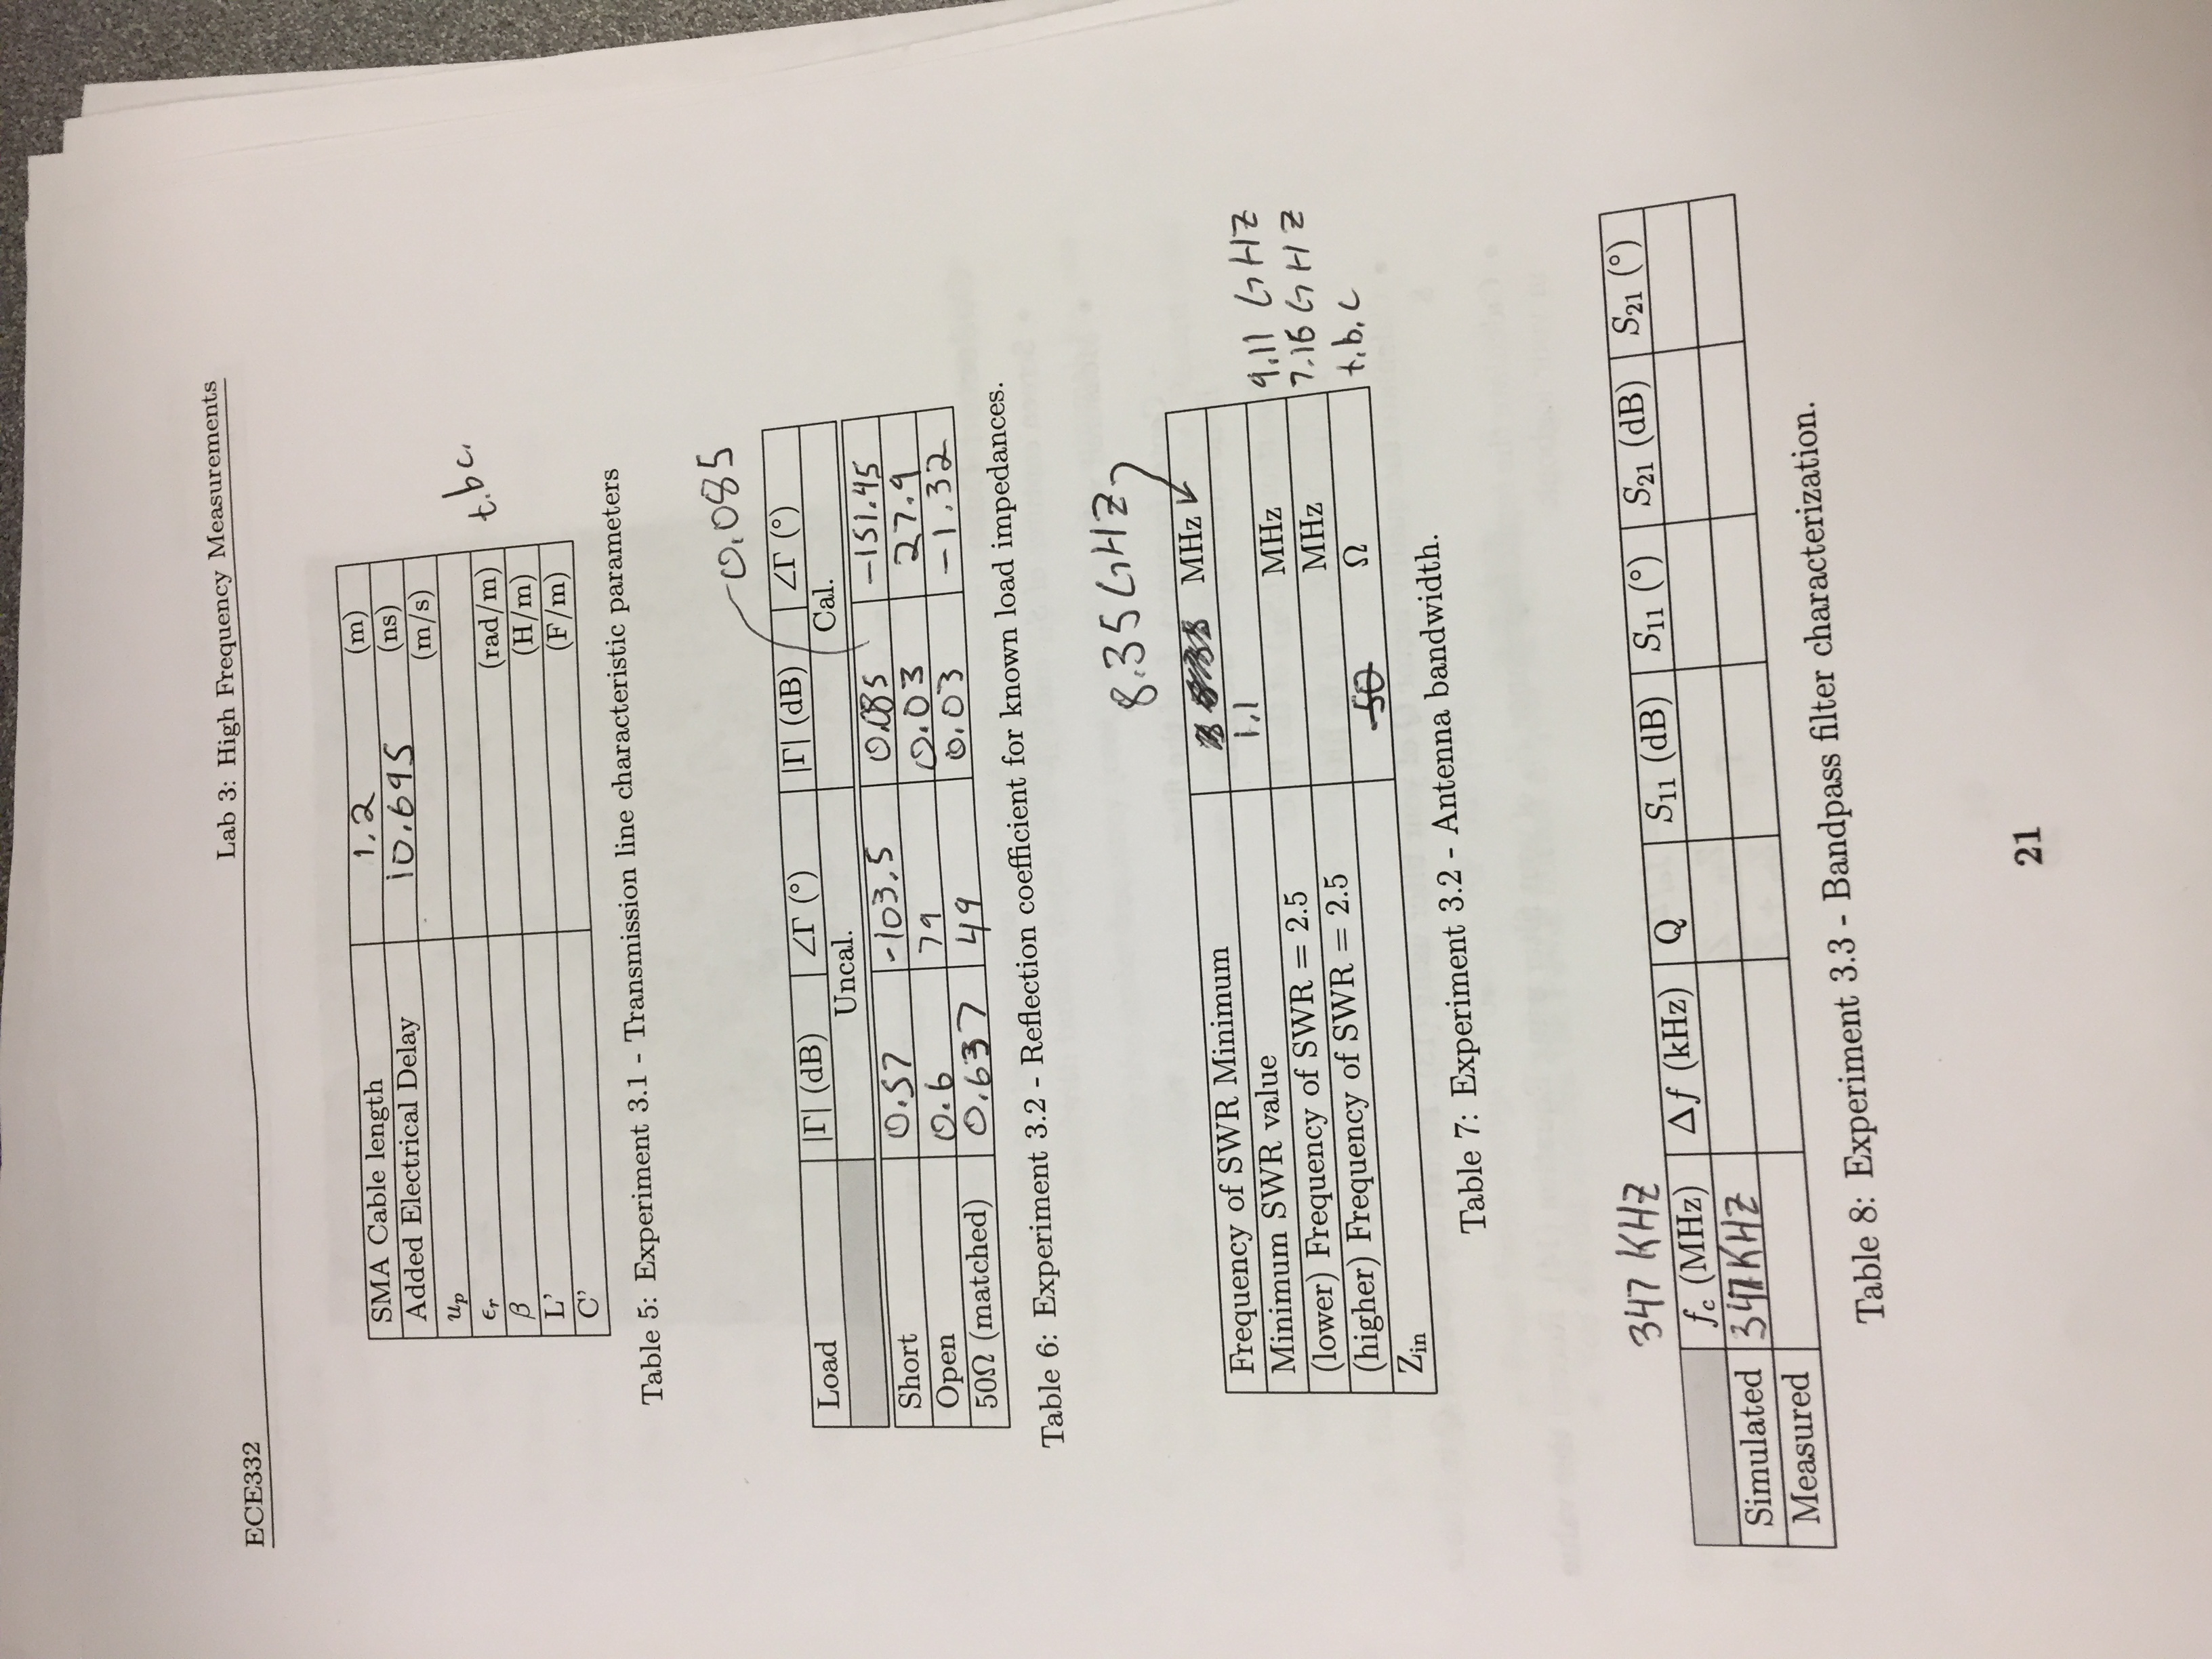 ECE332 Lab 3: High Frequency Measurements
SMA Cable length 1.2 (m)
Added Electrical Delay 10.695 (ns)
u_p (m/s)
ϵ_r
β (rad/m)
L' (H/m)
C' (F/m)
t.b.c.
Table 5: Experiment 3.1 - Transmission line characteristic parameters
0.085
Load |Γ| (dB) ∠Γ (°) |Γ| (dB) ∠Γ (°)
Uncal. Cal.
Short 0.57 -103.5 0.085 -151.45
Open 0.6 79 0.03 27.9
50Ω (matched) 0.637 49 0.03 -1.32
Table 6: Experiment 3.2 - Reflection coefficient for known load impedances.
8.35 GHZ
Frequency of SWR Minimum MHz
Minimum SWR value 1.1
(lower) Frequency of SWR = 2.5 MHz 9.11 GHZ
(higher) Frequency of SWR = 2.5 MHz 7.16 GHZ
Z_in 50 Ω t.b.c
Table 7: Experiment 3.2 - Antenna bandwidth.
347 KHZ
f_c (MHz) Δf (kHz) Q S_11 (dB) S_11 (°) S_21 (dB) S_21 (°)
Simulated 347 KHZ
Measured
Table 8: Experiment 3.3 - Bandpass filter characterization.
21